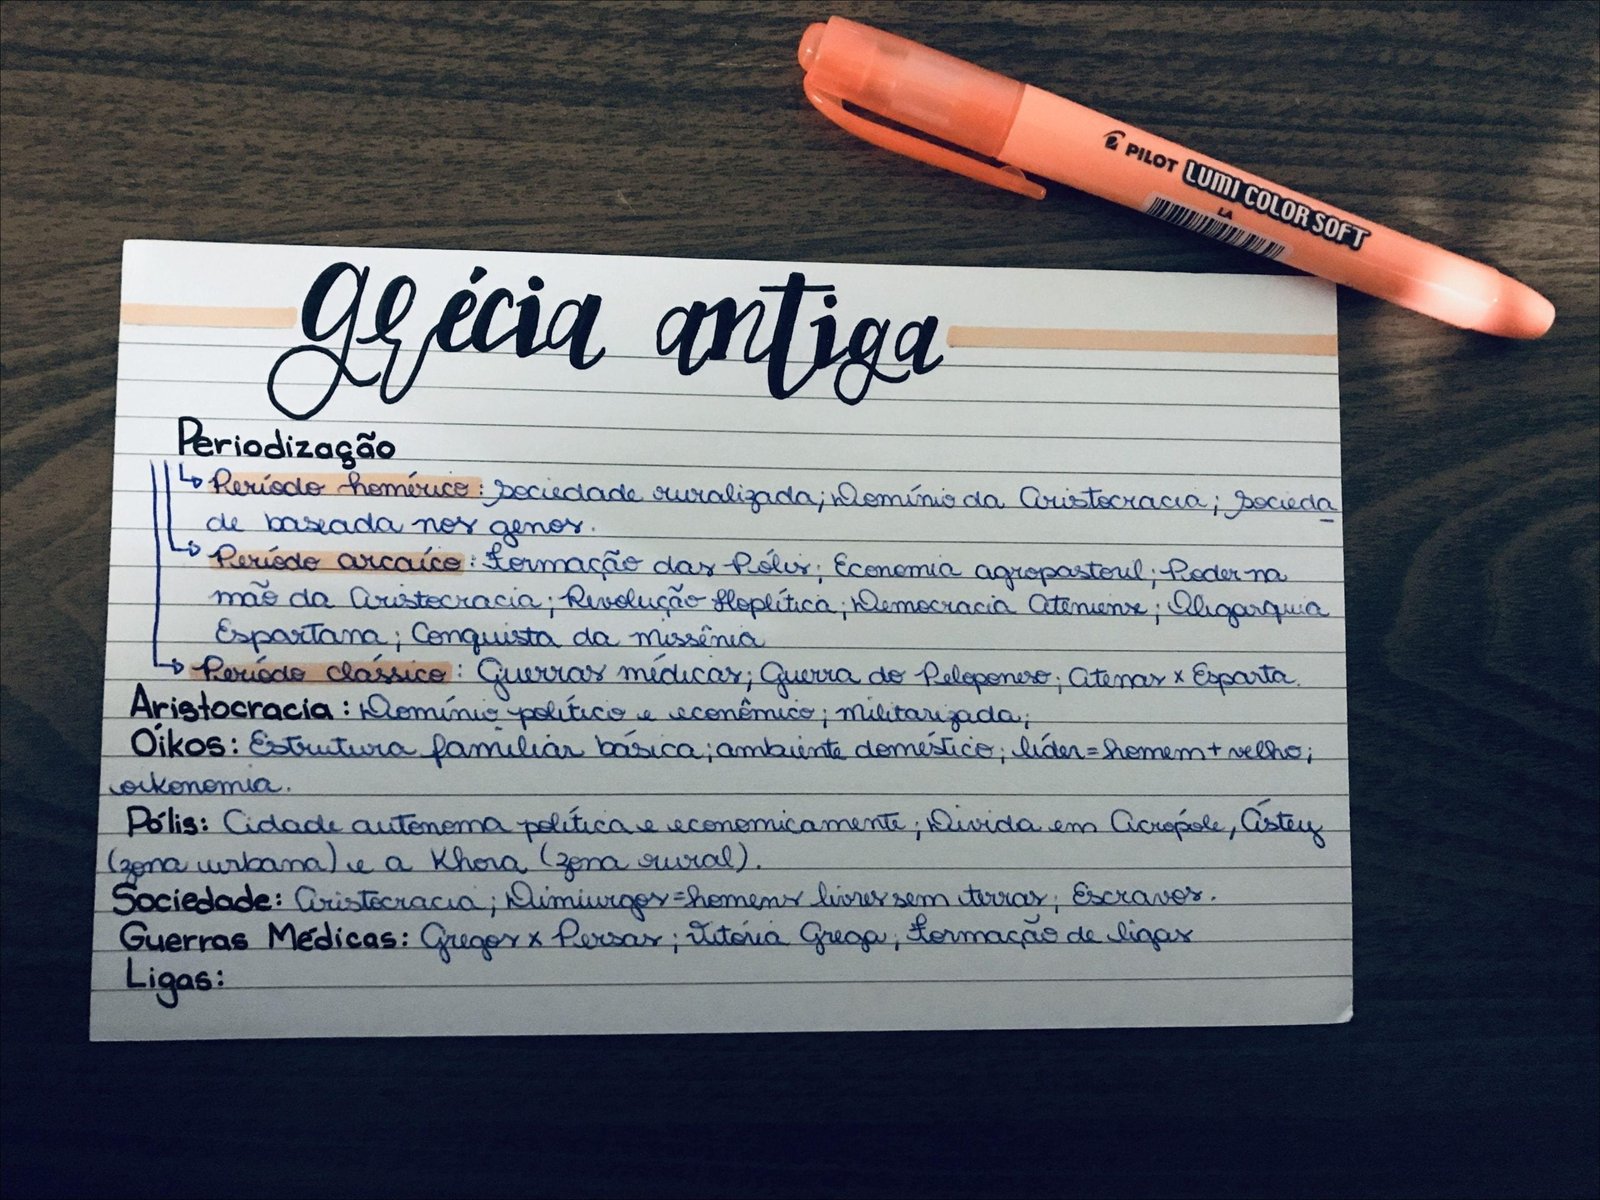 PILOT LUMI COLOR SOFT
LA
grécia antiga
Periodização
Período homérico: Sociedade ruralizada; Domínio da Aristocracia; Socieda
de baseada nos genos.
Período arcaíco: Formação das Pólis; Economia agropastoril; Poder na
mão da Aristocracia; Revolução Hoplítica; Democracia Ateniense; Oligarquia
Espartana; Conquista da Missênia
Período clássico: Guerras médicas; Guerra do Peloponeso; Atenas x Esparta.
Aristocracia: Domínio político e econômico; militarizada;
Óikos: Estrutura familiar básica; ambiente doméstico; líder=homem + velho;
oikonomia.
Pólis: Cidade autônoma política e economicamente; Divida em Acrópole, Ástey
(zona urbana) e a Khora (zona rural).
Sociedade: Aristocracia; Dimiurgos=homens livres sem terras; Escravos.
Guerras Médicas: Gregos x Persas; Vitória Grega; Formação de ligas
Ligas: